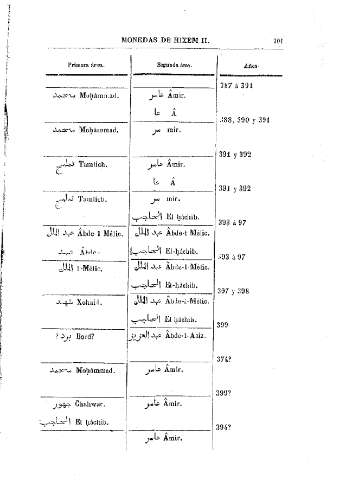 MONEDAS DE HIXEM II. 101
Primera área. Segunda área. Años.
387 á 391
محمد Mohámmad. عامر Âmir.
عا Â
388, 390 y 391
محمد Mohámmad. مر mir.
391 y 392
تمليح Tamlich. عامر Âmir.
عا Â
391 y 392
تمليح Tamlich. مر mir.
الحاجب El háchib.
393 á 97
عبد الملك Âbde-l-Mélic. عبد الملك Âbde-l-Mélic.
عبد Âbde- الحاجب El-háchib.
393 á 97
الملك l-Mélic. عبد الملك Âbde-l-Mélic.
الحاجب El-háchib.
397 y 398
شهيد Xohaid. عبد الملك Âbde-l-Mélic.
الحاجب El háchib.
399
برد? Bord? عبد العزيز Âbde-l-Aziz.
374?
محمد Mohámmad. عامر Âmir.
399?
جهور Chahwar. عامر Âmir.
الحاجب El háchib.
394?
عامر Âmir.